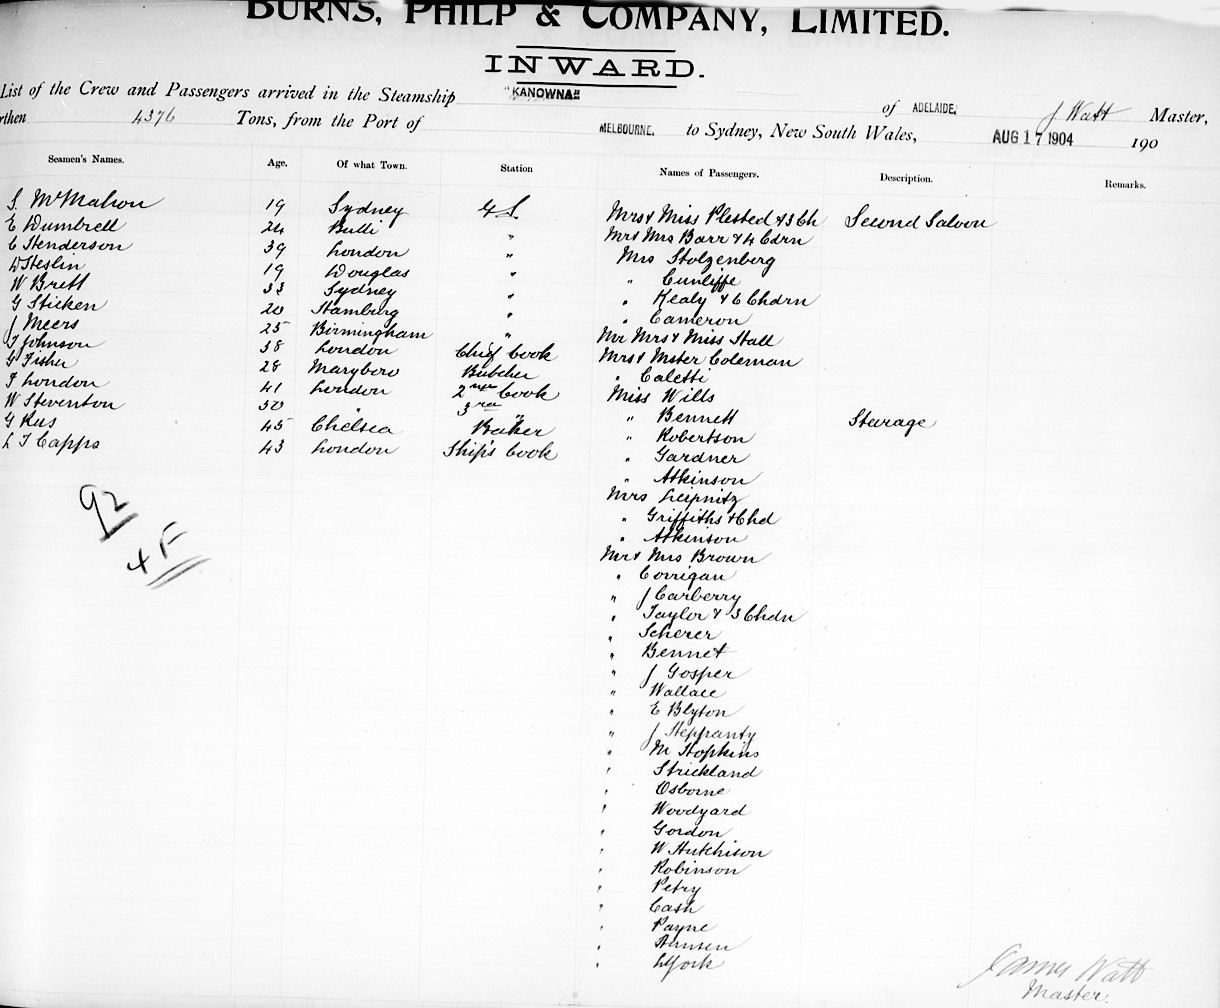 BURNS, PHILP & COMPANY, LIMITED.
INWARD.
List of the Crew and Passengers arrived in the Steamship "KANOWNA" of ADELAIDE, J Watt Master,
rthen 4376 Tons, from the Port of MELBOURNE. to Sydney, New South Wales, AUG 17 1904 190
Seamen's Names. Age. Of what Town. Station Names of Passengers. Description. Remarks.
S. McMahon 19 Sydney G S. Mrs & Miss Plested & 3 Ch Second Saloon
E Dumbrell 24 Bulli " Mr & Mrs Barr & 4 Cdrn
C Henderson 39 London " Mrs Stolzenberg
19 Douglas " " Cunliffe
W Brett 33 Sydney " " Kealy & 6 Chdrn
G Sticken 20 Hamburg " " Cameron
J Meers 25 Birmingham " Mr Mrs & Miss Hall
T Johnson 38 London Chief Cook Mrs & Mster Coleman
G Fisher 28 Maryboro Butcher " Caletti
F London 41 London 2nd Cook Miss Wills
W Steventon 50 " 3rd " " Bennett Sterage
G Rus 45 Chelsea Baker " Robertson
L T Capps 43 London Ship's Cook " Gardner
" Atkinson
Mrs Leipnitz
" Griffiths & Chd
" Atkinson
Mr & Mrs Brown
" Corrigan
" J Carberry
" Taylor & 3 Chdn
" Scherer
" Bennet
" J Gosper
" Wallace
" E Blyton
" J Heppranty
" M Hopkins
" Strickland
" Osborne
" Woodyard
" Gordon
" W Hutchison
" Robinson
" Petry
" Cash
" Payne
" Hansen
" York
92
4 F
James Watt
Master.